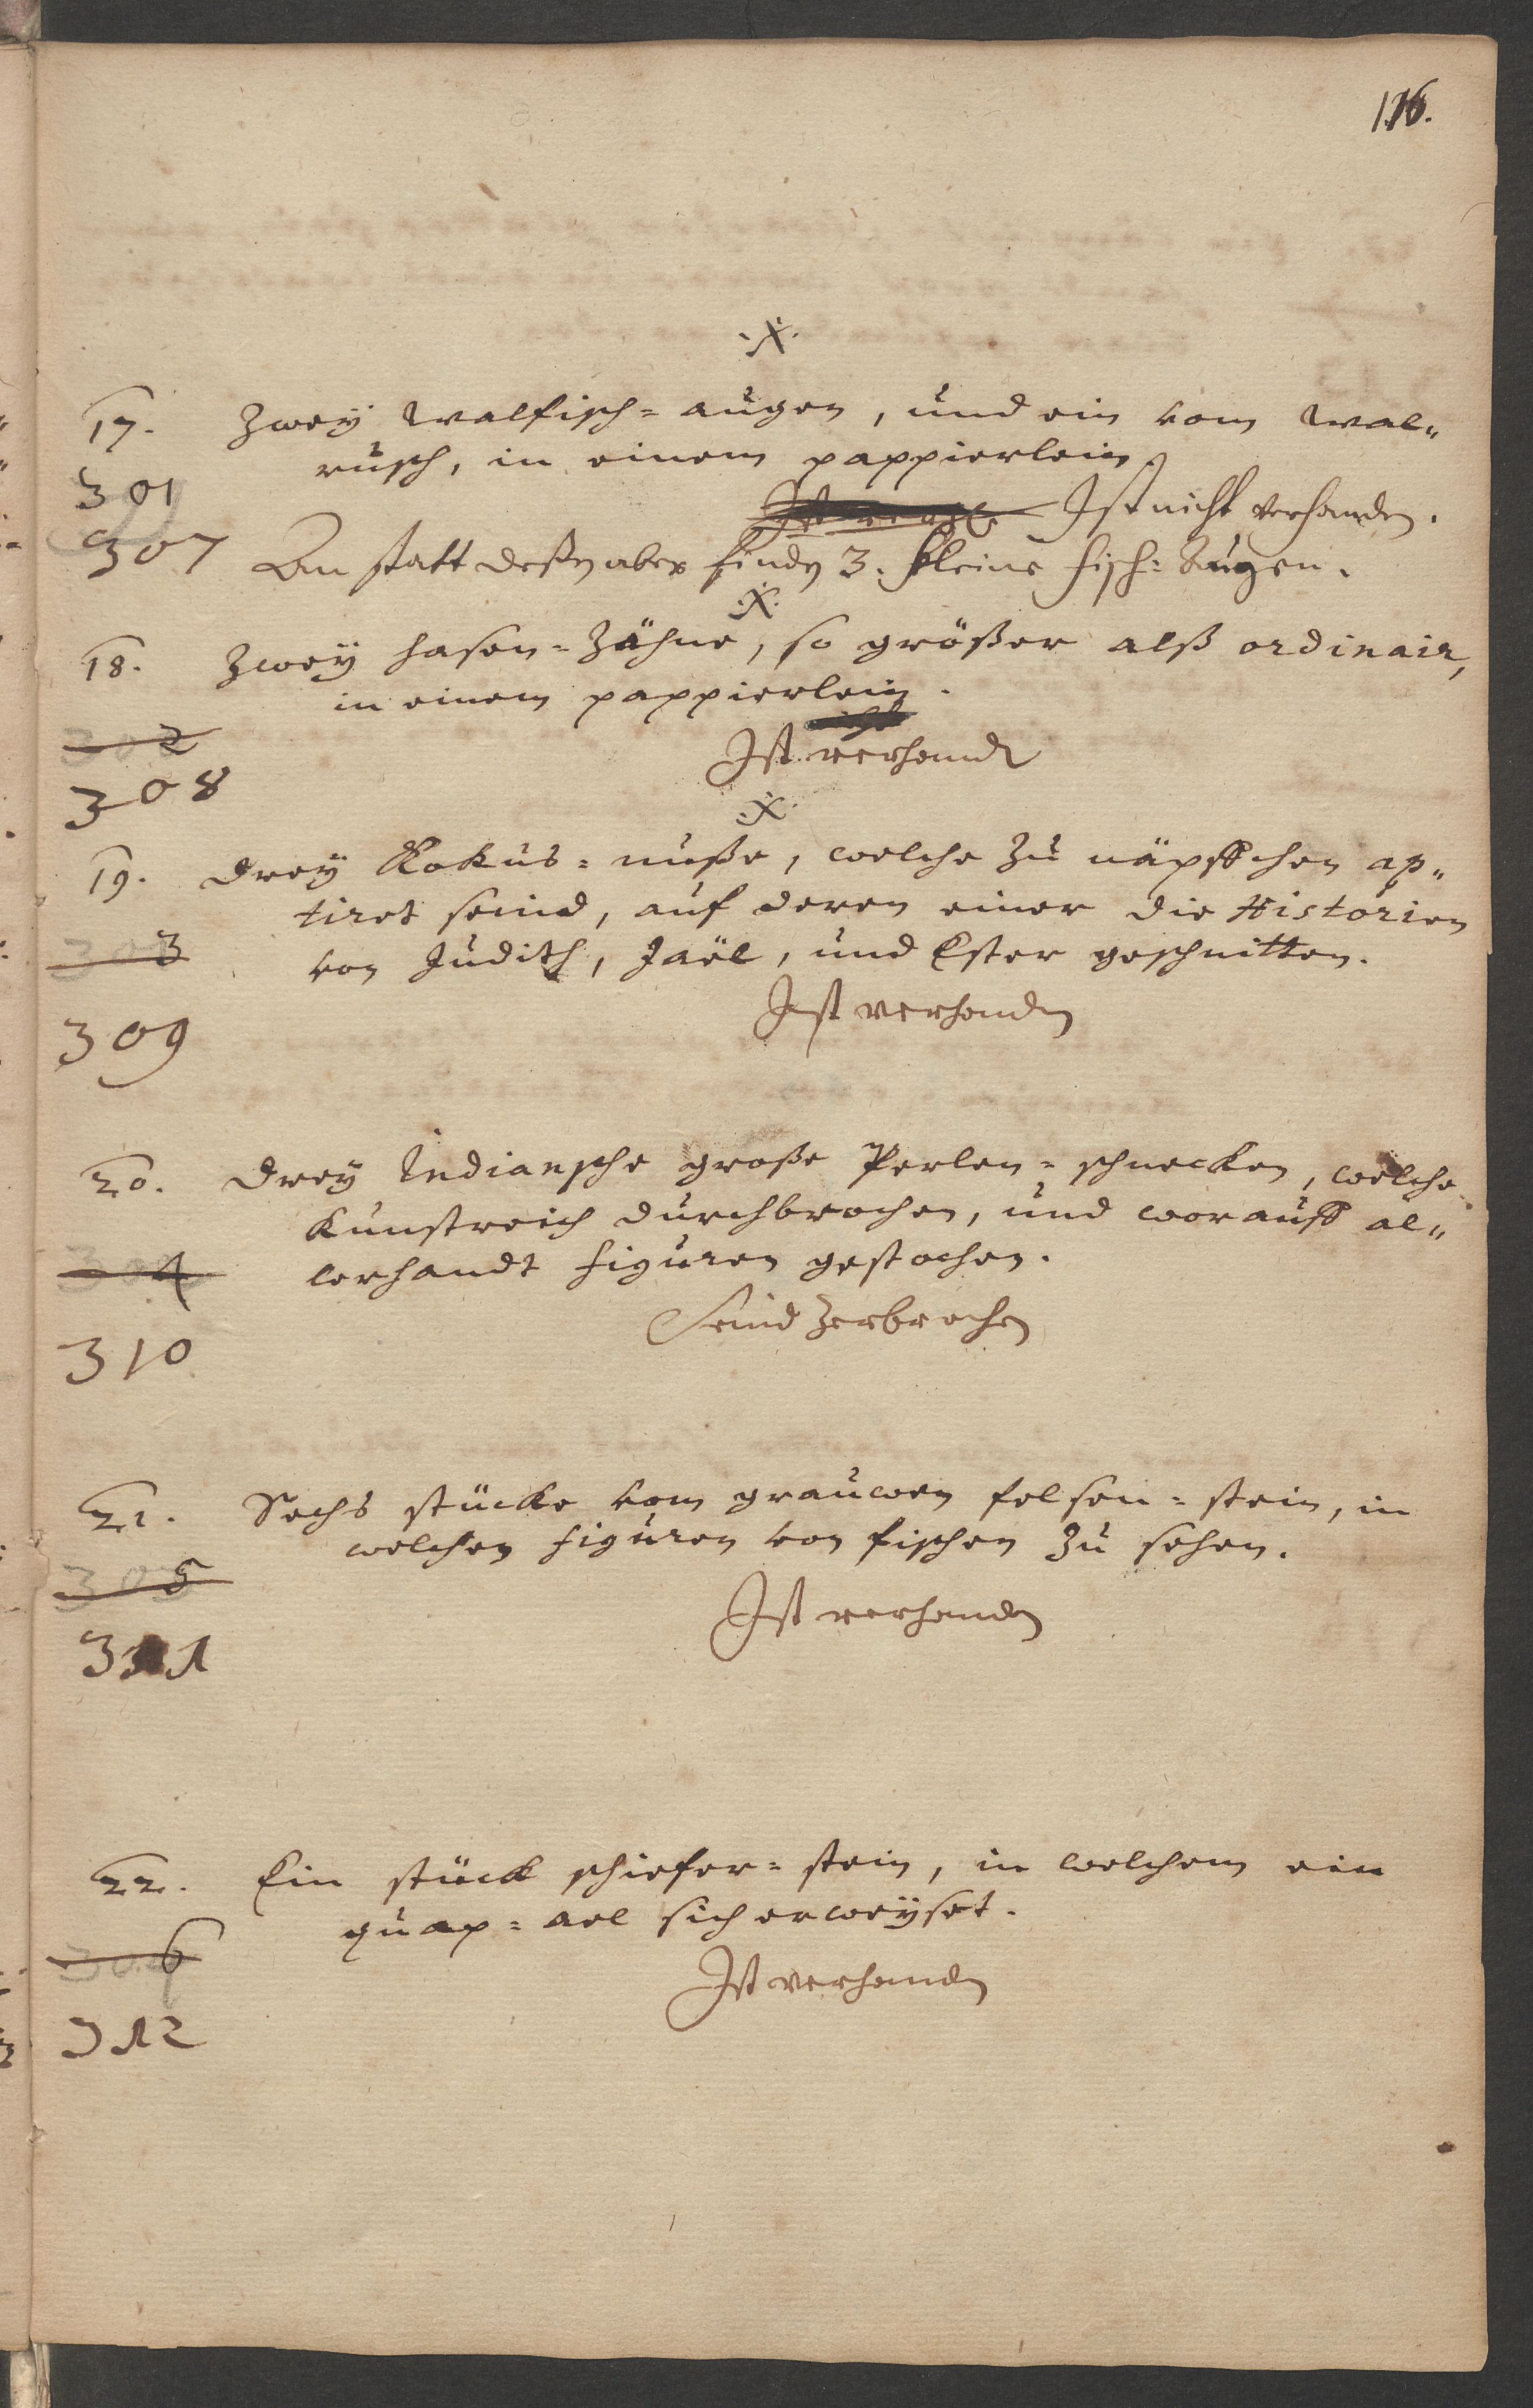 116.
.X.
17. Zwey Walfisch=augen, und ein vom Wal„
rusch, in einem pappierlein
301
Ist nicht verhanden.
307 An statt deßen aber finden 3. kleine fisch=Augen.
.X.
18. Zwey hasen=Zähne, so größer alß ordinair,
in einem pappierlein.
302
Ist verhanden
308
.X.
19. Drey Kokus=nuße, welche zu näpffchen ap„
tiret seind, auf deren einer die Historien
303
von Judith, Jaël, und Ester geschnitten.
Ist verhanden
309
20. Drey Indiansche große Perlen=schnecken, welche
kunstreich durchbrochen, und worauff al„
304
lerhandt figuren gestochen.
Seind zerbrochen
310
21. Sechs stücke vom grauwen felsen=stein, in
welchen figuren von fischen zu sehen.
305
Ist verhanden
311
22. Ein stück schiefer=stein, in welchem ein
quap=ael sich erweyset.
306
Ist verhanden
312